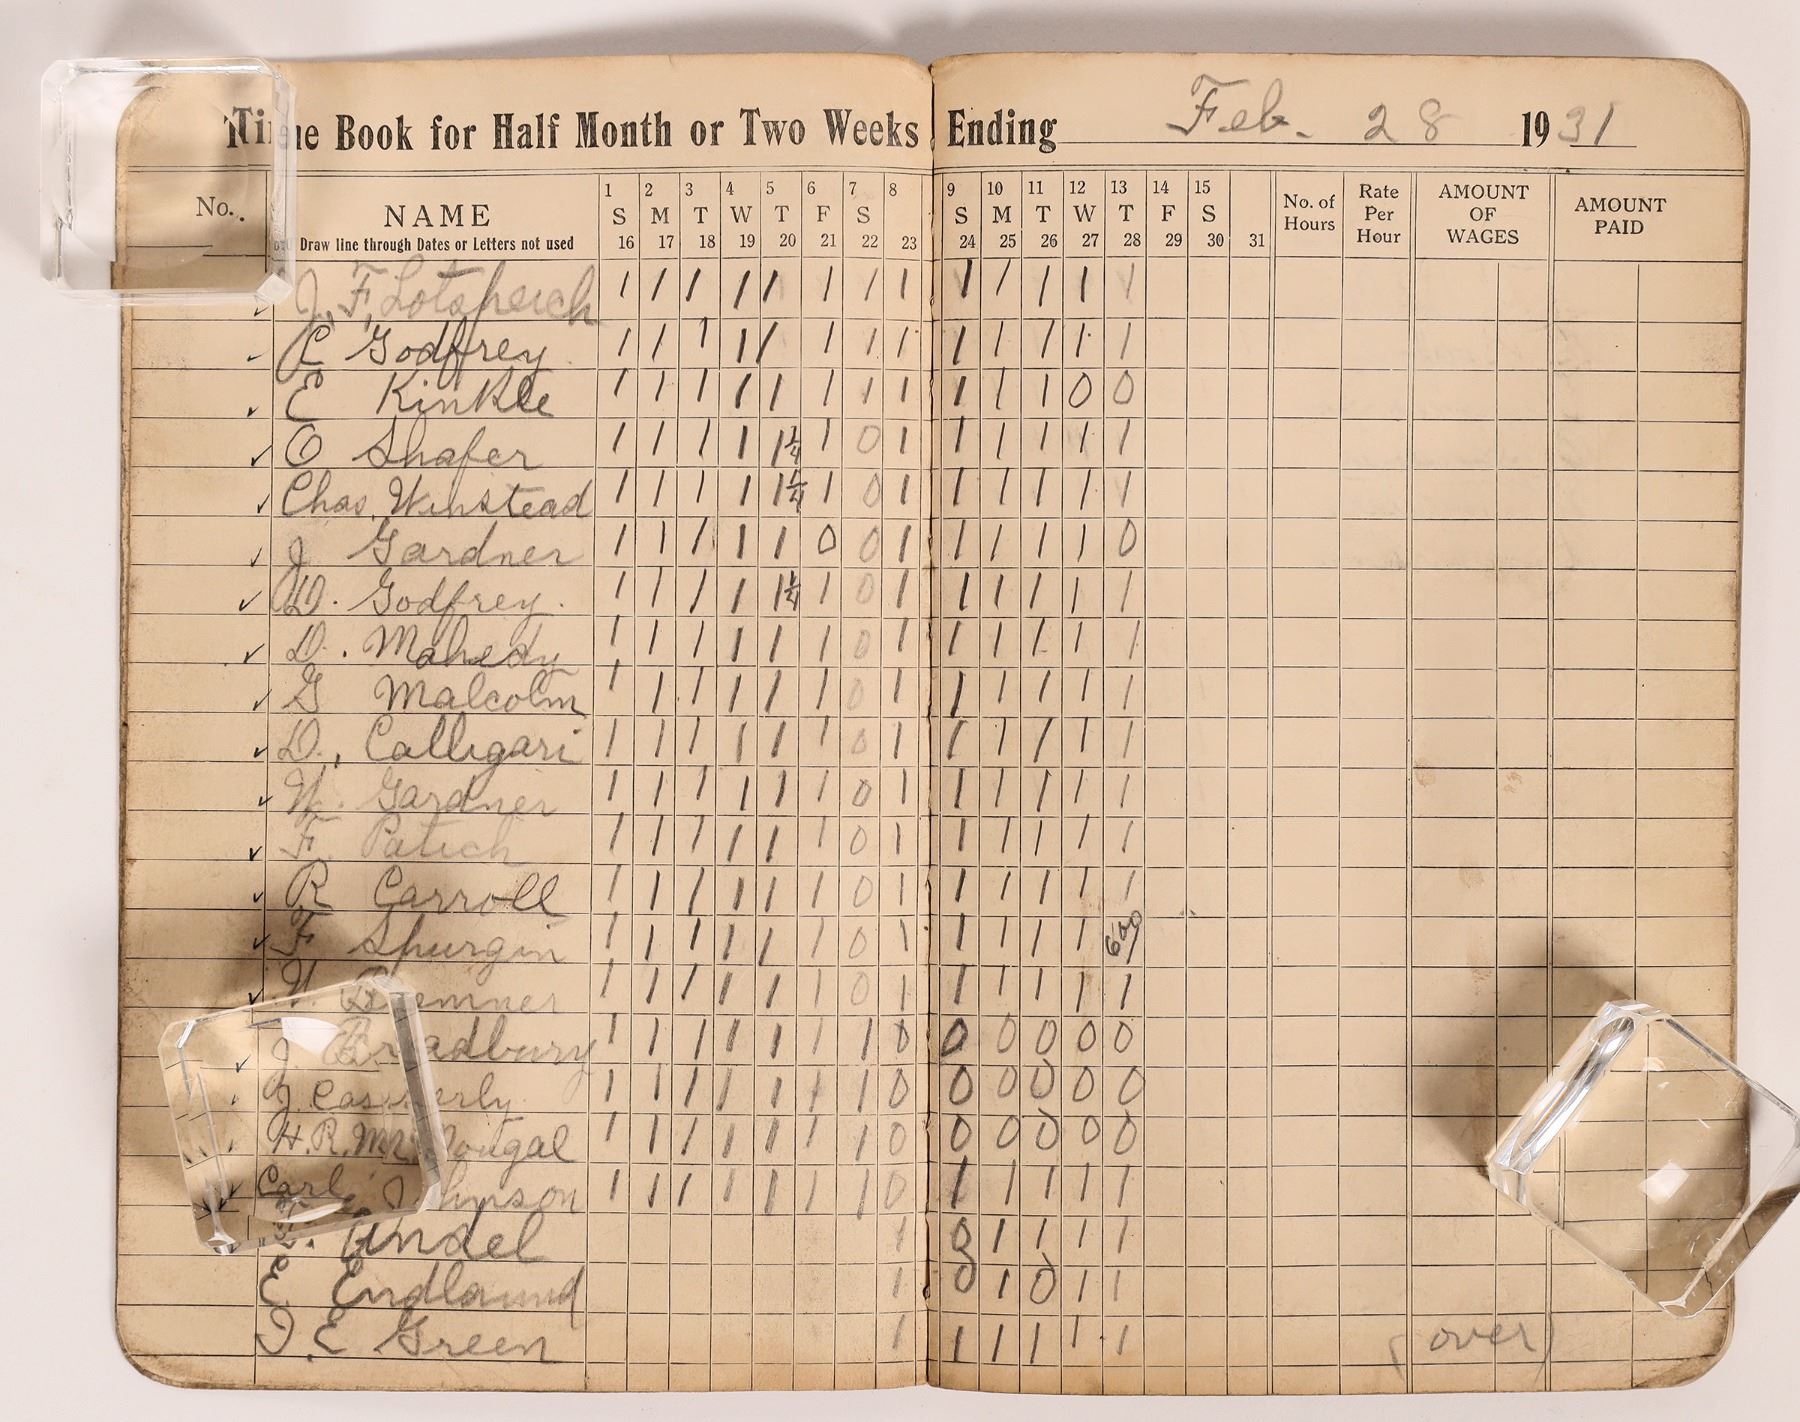 Time Book for Half Month or Two Weeks Ending Feb. 28 1931
No. NAME 1 2 3 4 5 6 7 8 9 10 11 12 13 14 15 No. of Hours Rate Per Hour AMOUNT OF WAGES AMOUNT PAID
S M T W T F S S M T W T F S
Draw line through Dates or Letters not used 16 17 18 19 20 21 22 23 24 25 26 27 28 29 30 31
✓ J. F. Lotspeich 1 1 1 1 1 1 1 1 1 1 1 1 1
✓ C Godfrey. 1 1 1 1 1 1 1 1 1 1 1 1 1
✓ E Kinkle 1 1 1 1 1 1 1 1 1 1 1 0 0
✓ O Shafer 1 1 1 1 1 1/4 1 0 1 1 1 1 1 1
✓ Chas. Winstead 1 1 1 1 1 1/4 1 0 1 1 1 1 1 1
✓ J Gardner 1 1 1 1 1 0 0 1 1 1 1 1 0
✓ D. Godfrey. 1 1 1 1 1 1/4 1 0 1 1 1 1 1 1
✓ D. Mahedy 1 1 1 1 1 1 0 1 1 1 1 1 1
✓ G Malcolm 1 1 1 1 1 1 0 1 1 1 1 1 1
✓ D. Calligari 1 1 1 1 1 1 0 1 1 1 1 1 1
✓ W. Gardner 1 1 1 1 1 1 0 1 1 1 1 1 1
✓ F. Patich 1 1 1 1 1 1 0 1 1 1 1 1 1
✓ R Carroll 1 1 1 1 1 1 0 1 1 1 1 1 1
✓ F Spurgin 1 1 1 1 1 1 0 1 1 1 1 1
✓ W. 1 1 1 1 1 1 0 1 1 1 1 1 1
✓ J. Bradbury 1 1 1 1 1 1 1 0 0 0 0 0 0
J. 1 1 1 1 1 1 1 0 0 0 0 0 0
H. R. 1 1 1 1 1 1 1 0 0 0 0 0 0
✓ Carl Johnson 1 1 1 1 1 1 1 0 1 1 1 1 1
Andel 1 0 1 1 1 1
E. Endlaund 1 0 1 0 1 1
J. E Green 1 1 1 1 1 1
(over)